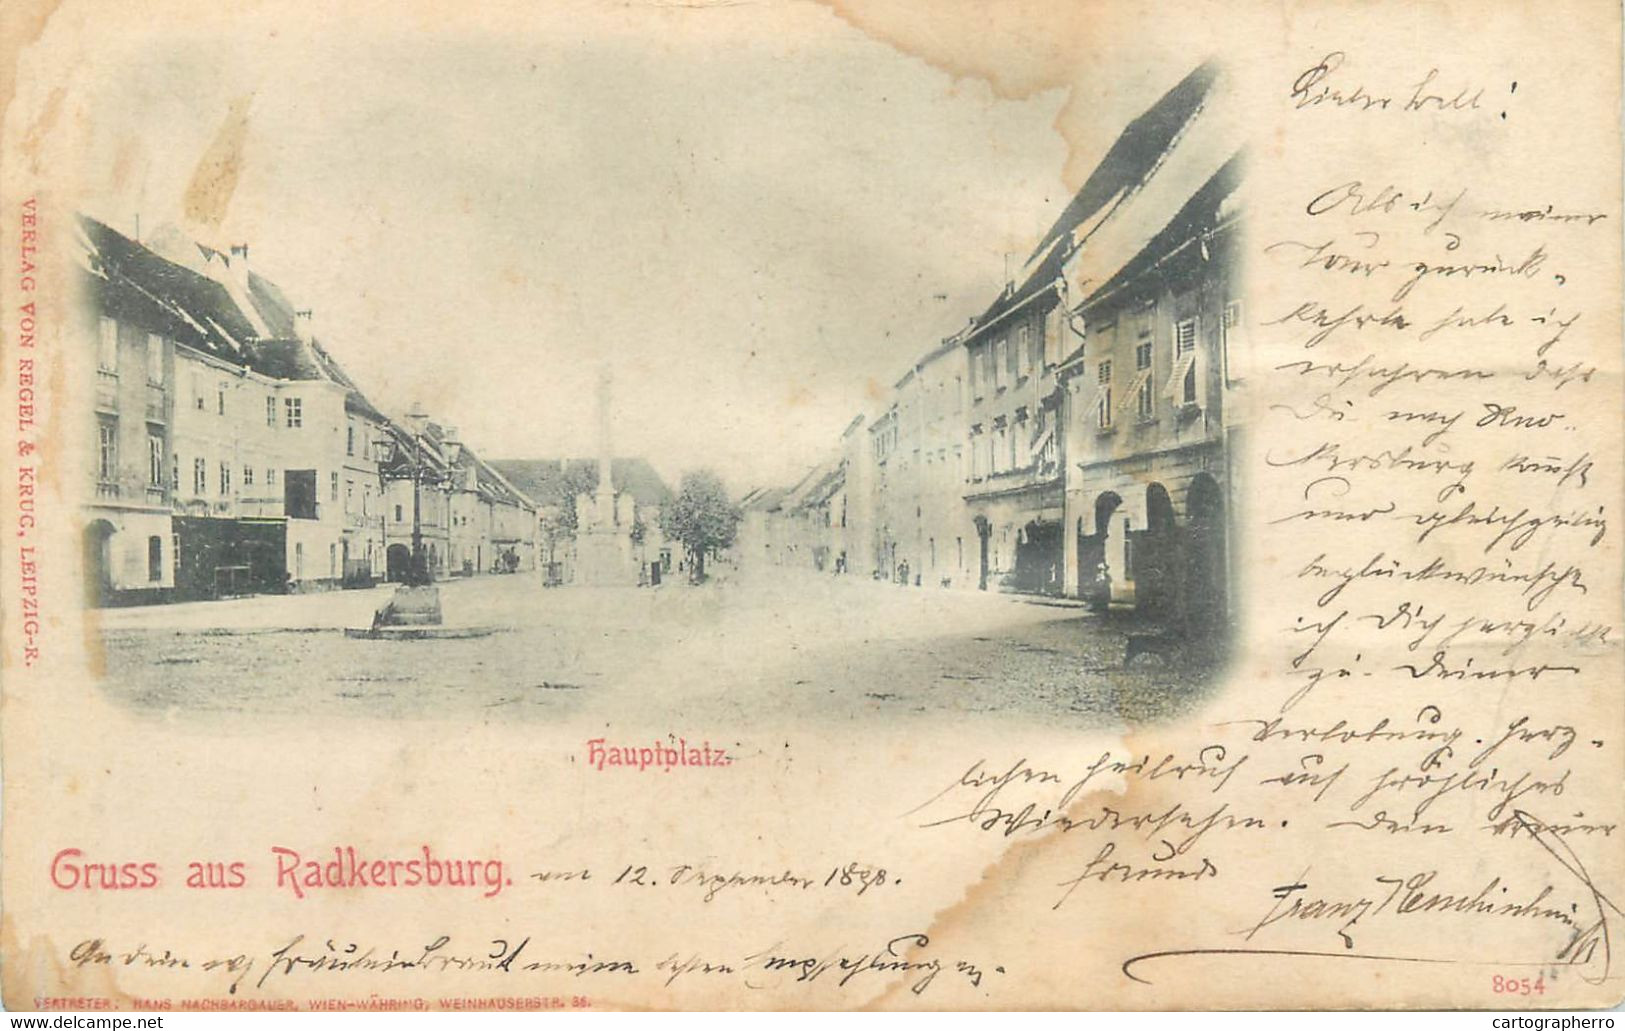 Lieber Will!
Als ich meiner
Tour zurück-
kehrte habe ich
erfahren dass
Du nach Rad-
kersburg kommst
und gleichzeitig
beglückwünsche
ich Dich herzlich
zu Deiner
Verlobung. Herz-
lichen Heilruf auf fröhliches
Wiedersehen. Dein treuer
Freund
Franz
VERLAG VON REGEL & KRUG, LEIPZIG-R.
Hauptplatz.
Gruss aus Radkersburg. am 12. September 1898.
An dein Fräulein Braut meine besten Empfehlungen.
VERTRETER: HANS NACHBARGAUER, WIEN-WÄHRING, WEINHAUSERSTR. 36.
8054
cartographerro